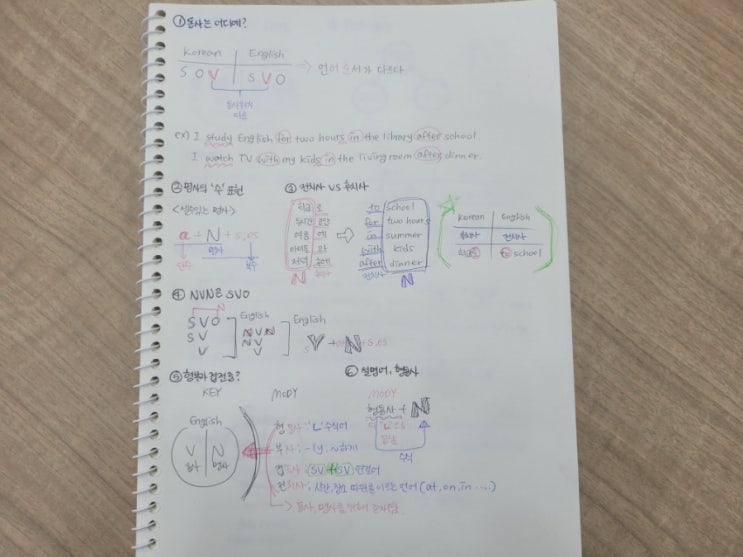 ① 동사는 어디에?
Korean | English
S O V | S V O → 언어 순서가 다르다
ex) I study English for two hours in the library after school
I watch TV with my kids in the living room after dinner.
② 명사의 '수' 표현
<셀수있는 명사>
a + N + s, es
단수 명사 복수
③ 전치사 VS 후치사
학교 로 ⇨ to school
두시간 동안 for two hours
여름 에 in summer
아이들 과 with kids
저녁 후에 after dinner
N 후치사 전치사 N
Korean | English
후치사 | 전치사
학교로 | to school
④ NVN은 SVO
N
S V O English English
S V N V N
V N V
V
V + a N + s, es
⑤ 형부가 접전중?
KEY MODY
English
V | N
동사 | 명사
형용사 : 'ㄴ' 수식어
부사 : -ly, ~하게
접속사 : SV + SV 연결어
전치사 : 시간, 장소 따위를 이르는 언어 (at, on, in ....)
→ 동사, 명사를 위해 존재함
⑥ 설명어, 형용사
MODY
형용사 + N
"ㄴ"
수식